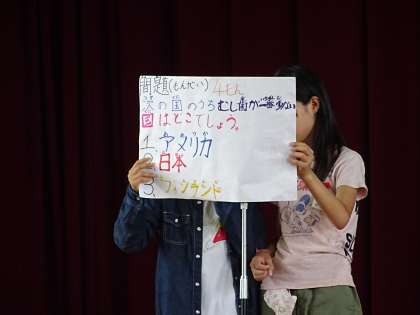 問題(もんだい) 4もん
次の国のうちむし歯が一番少ない
国はどこでしょう。
1. アメリカ
2. 日本
3. フィンランド